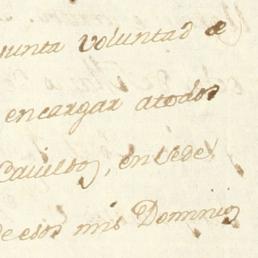 junta voluntad de
encargar a todos
Cavildos, en Sede
de esos mis Dominios